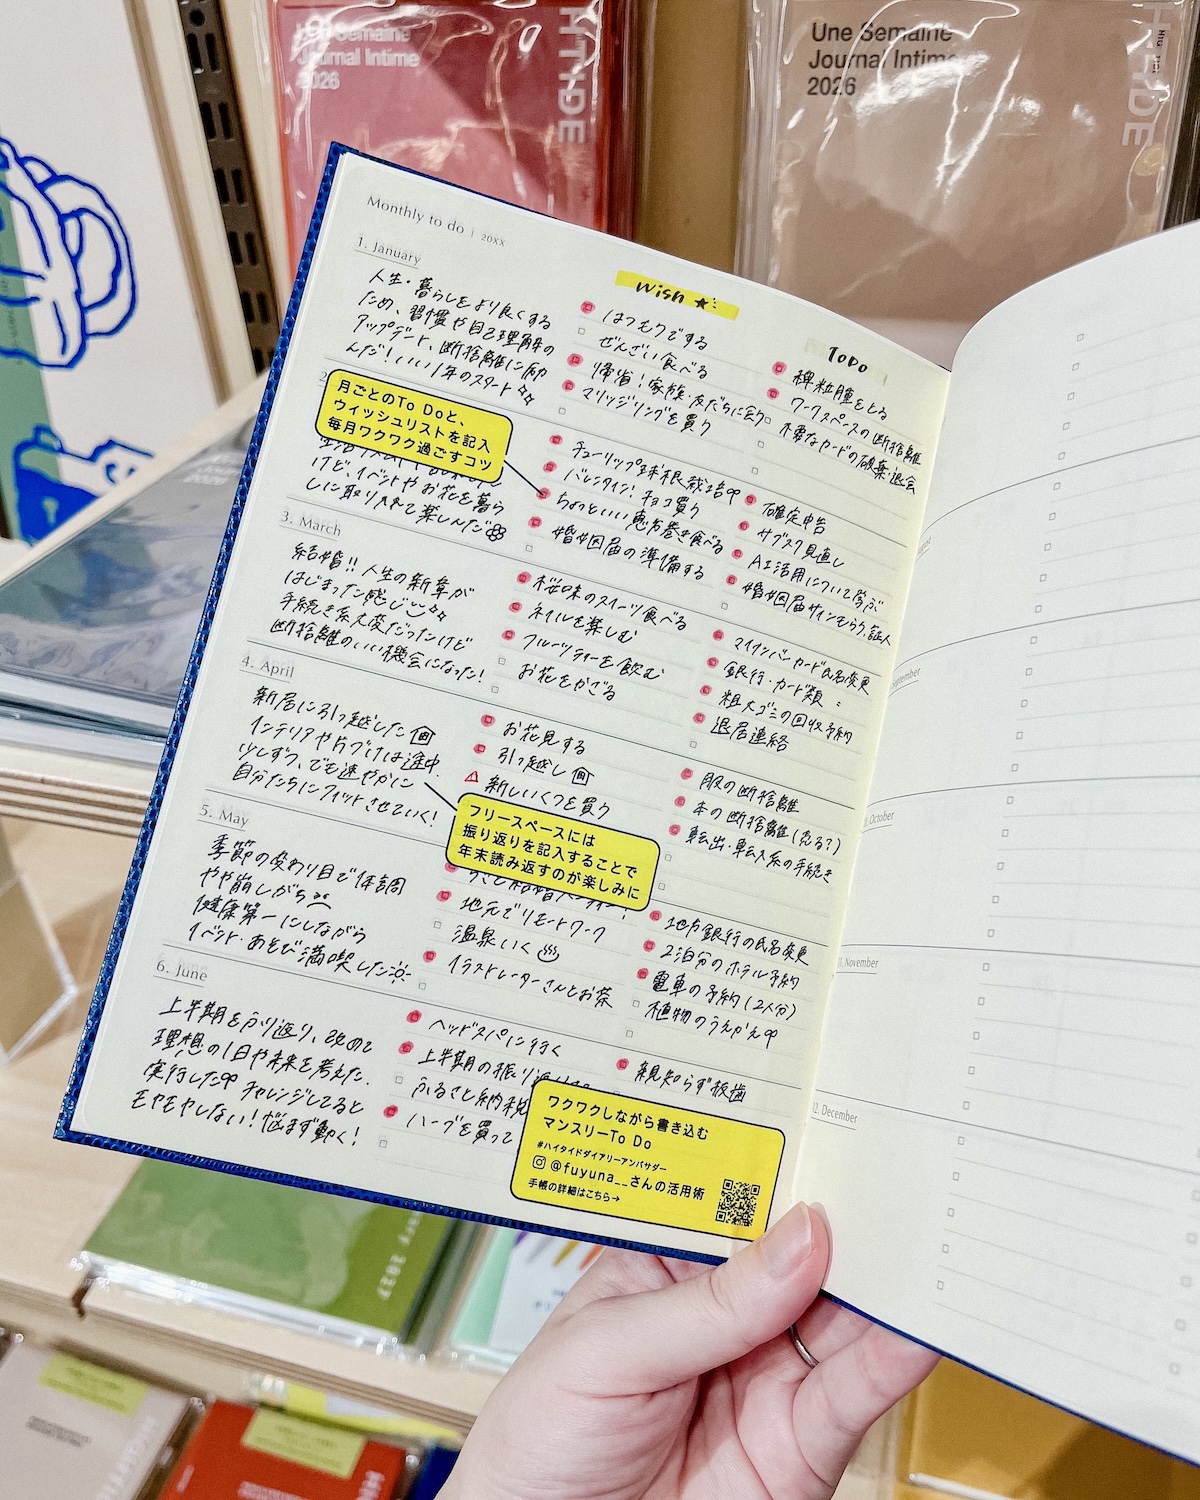 Une Semaine
Journal Intime
2026
HIGHTIDE
Une Semaine
Journal Intime
2026
Monthly to do | 20XX
1. January
人生・暮らしをより良くする
ため、習慣や自己理解の
アップデート、断捨離に励
んだ!いい1年のスタート
月ごとのTo Doと、
ウィッシュリストを記入
毎月ワクワク過ごすコツ
けど、イベントやお花を暮ら
しに取り入れて楽しんだ
3. March
結婚!!人生の新章が
はじまった感じ
手続き系大変だったけど
断捨離のいい機会になった!
4. April
新居に引っ越しした
インテリアや片づけは途中.
少しずつ、でも速やかに
自分たちにフィットさせていく!
5. May
季節の変わり目で体調
やや崩しがち
健康第一にしながら
イベント・あそび満喫した
6. June
上半期をふり返り、改めて
理想の1日や未来を考えた.
実行した チャレンジしてると
モヤモヤしない!悩まず動く!
wish ★
はつもうでする
ぜんざい食べる
帰省!家族・友だちに会う
マリッジリングを買う
チューリップ球根栽培
バレンタイン!チョコ買う
ちょっといい恵方巻き食べる
婚姻届の準備する
桜味のスイーツ食べる
ネイルを楽しむ
フルーツティーを飲む
お花をかざる
お花見する
引っ越し
新しいくつを買う
フリースペースには
振り返りを記入することで
年末読み返すのが楽しみに
地元でリモートワーク
温泉いく
イラストレーターさんとお茶
ヘッドスパに行く
上半期の振り返り
ふるさと納税
ハーブを買って
ToDo
稗粒腫をとる
ワークスペースの断捨離
不要なカードの破棄・退会
確定申告
サブスク見直し
AI活用について学ぶ
婚姻届サインもらう、証人
マイナンバーカード氏名変更
銀行・カード類 :
粗大ゴミの回収予約
退居連絡
服の断捨離
本の断捨離(売る?)
転出・転入系の手続き
地方銀行の氏名変更
2泊分のホテル予約
電車の予約(2人分)
植物のうえかえ
親知らず抜歯
ワクワクしながら書き込む
マンスリーTo Do
#ハイタイドダイアリーアンバサダー
@fuyuna__さんの活用術
手帳の詳細はこちら→
October
11. November
12. December
2027